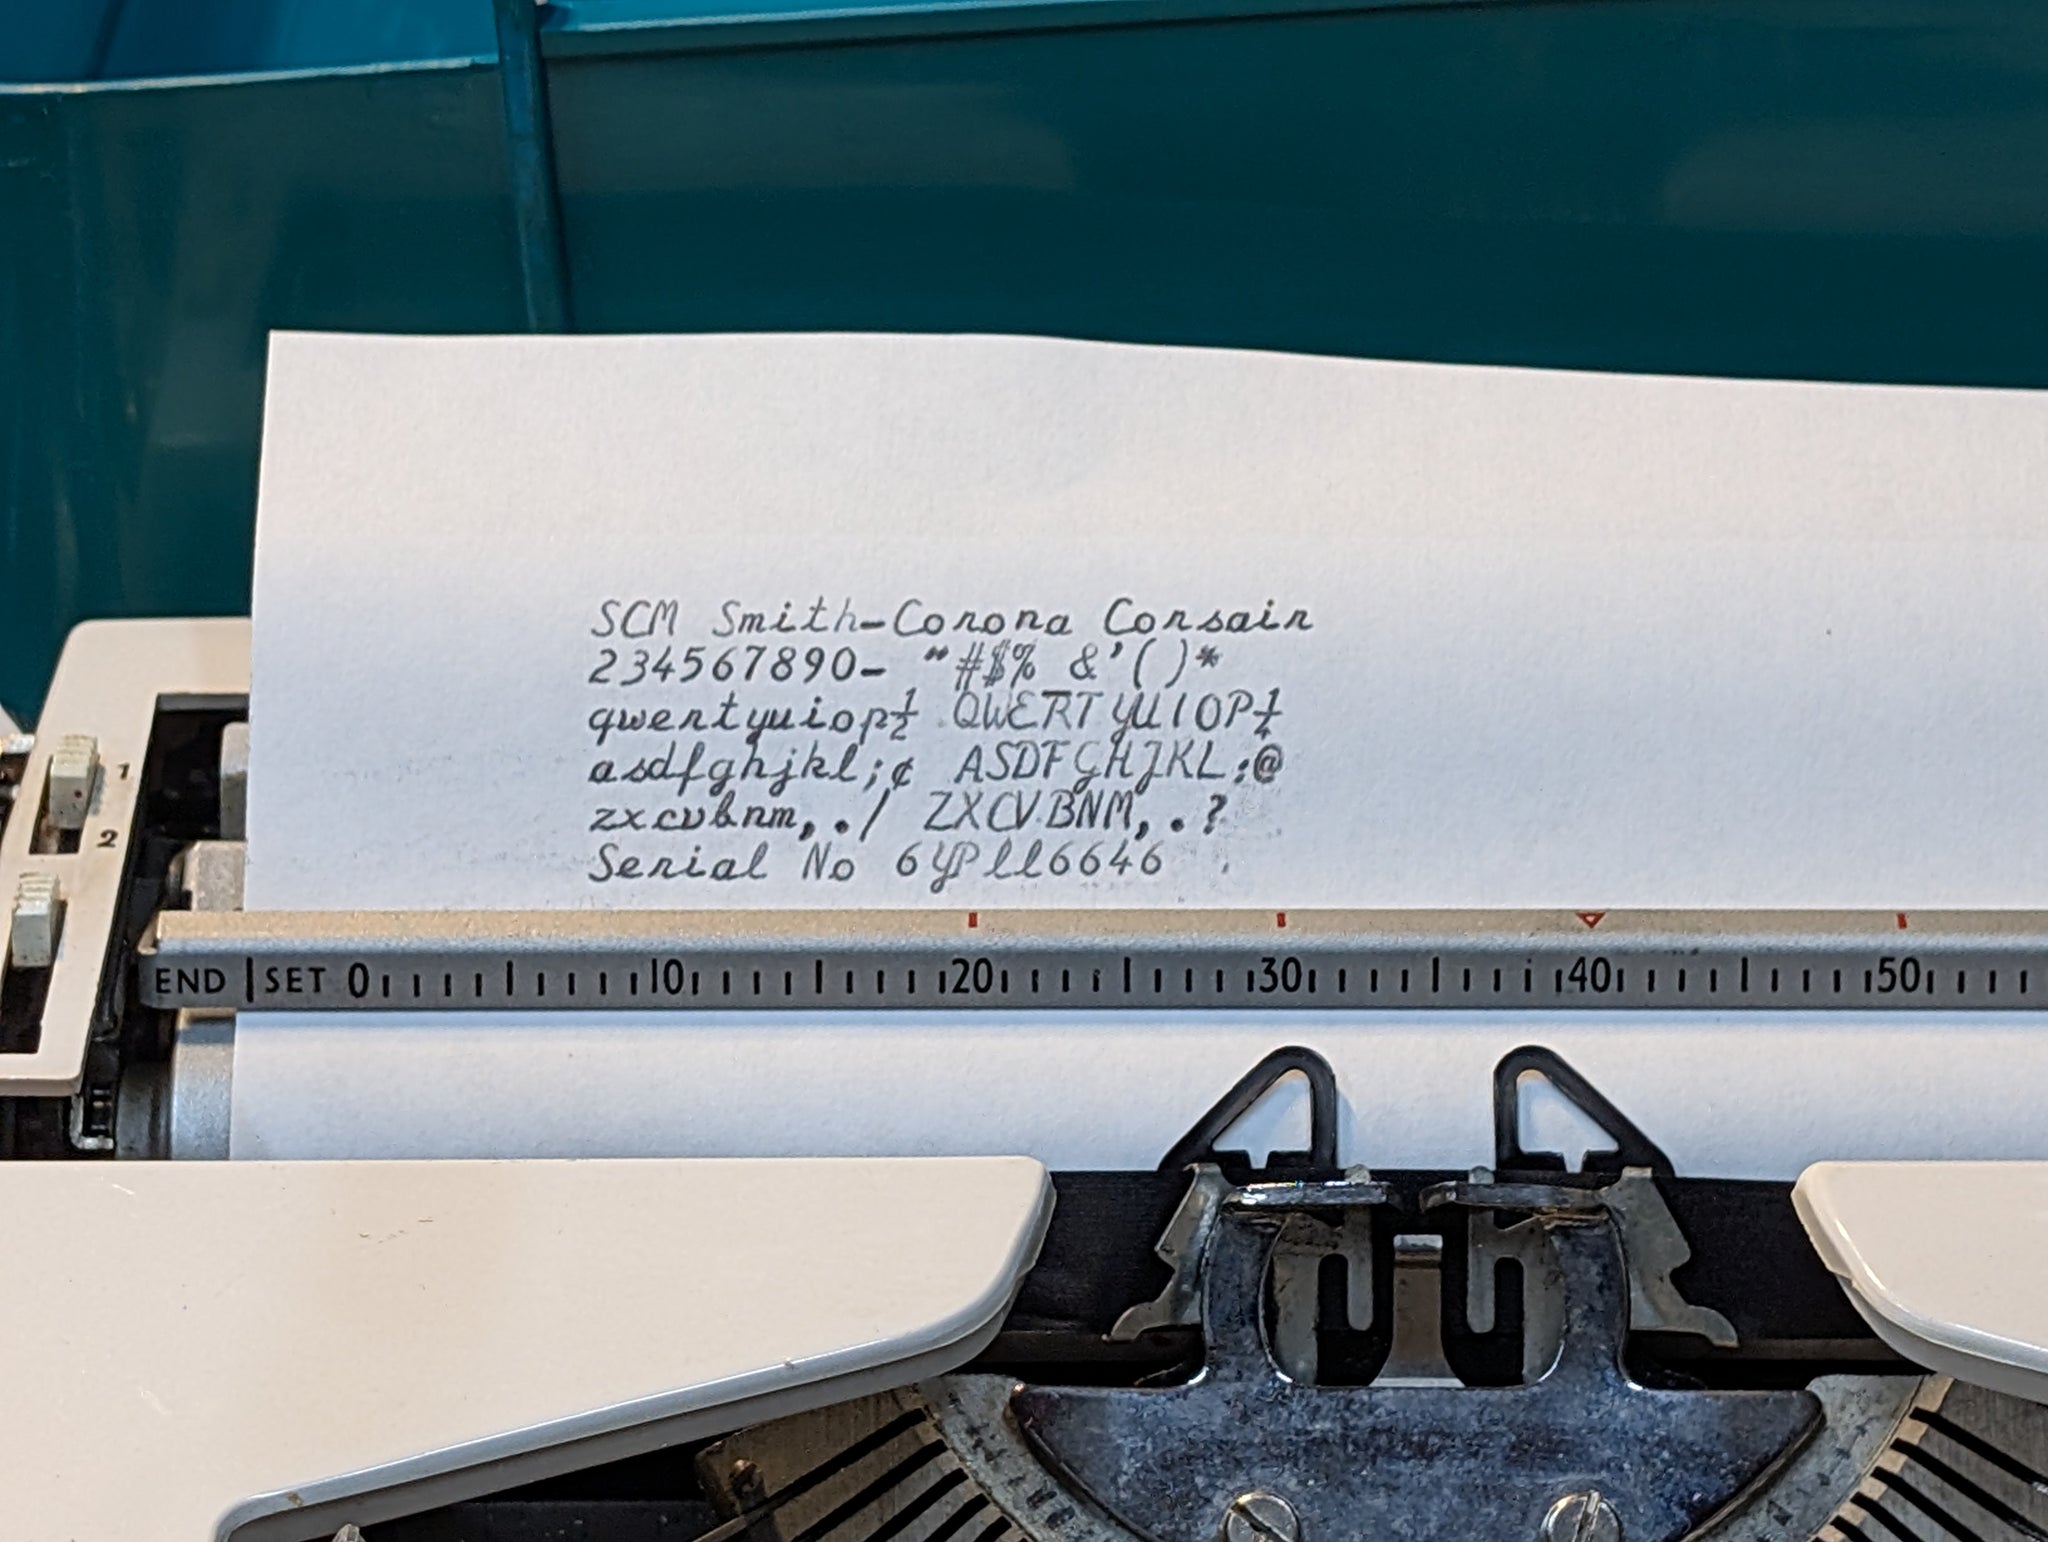 SCM Smith-Corona Corsair
234567890- "#$% &'()*
qwertyuiop½ QWERTYUIOP¼
asdfghjkl;¢ ASDFGHJKL:@
zxcvbnm,./ ZXCVBNM,.?
Serial No 6YPll6646
1
2
END | SET 0 10 20 30 40 50